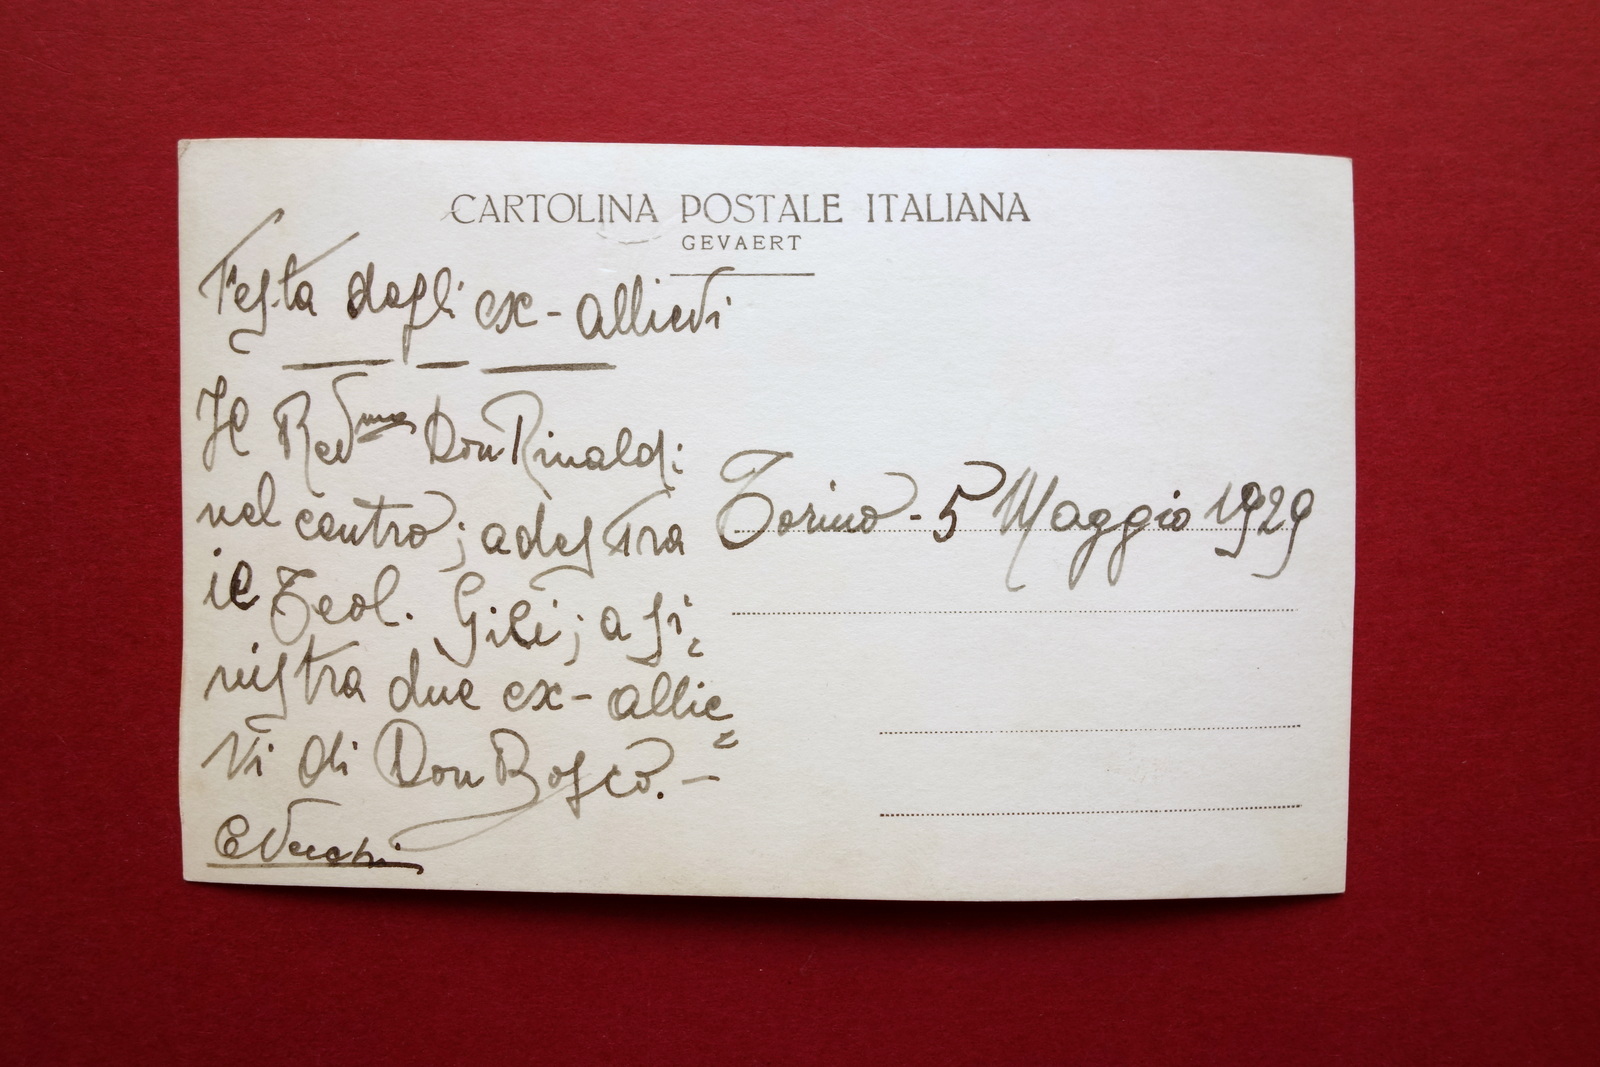 CARTOLINA POSTALE ITALIANA
GEVAERT
Festa degli ex-allievi
Il Revmo Don Rinaldi
nel centro; a destra
il Teol. Gili; a si=
nistra due ex-allie=
vi di Don Bosco.-
Torino - 5 Maggio 1929